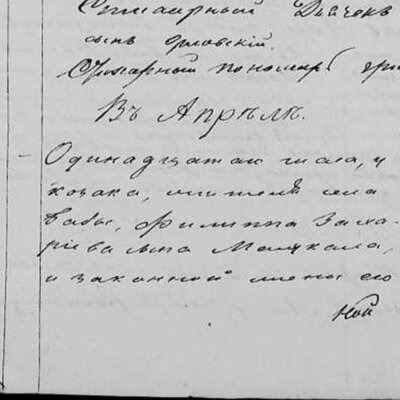 Стихарный Дьячекъ
сынъ Орловскій.
Стихарный пономарь
Въ Апрѣлѣ.
Одинадцатаго числа, у
козака, жителя села
Бабы, Филиппа Заха-
ріева сына Мацкала,
и законной жены его
ной